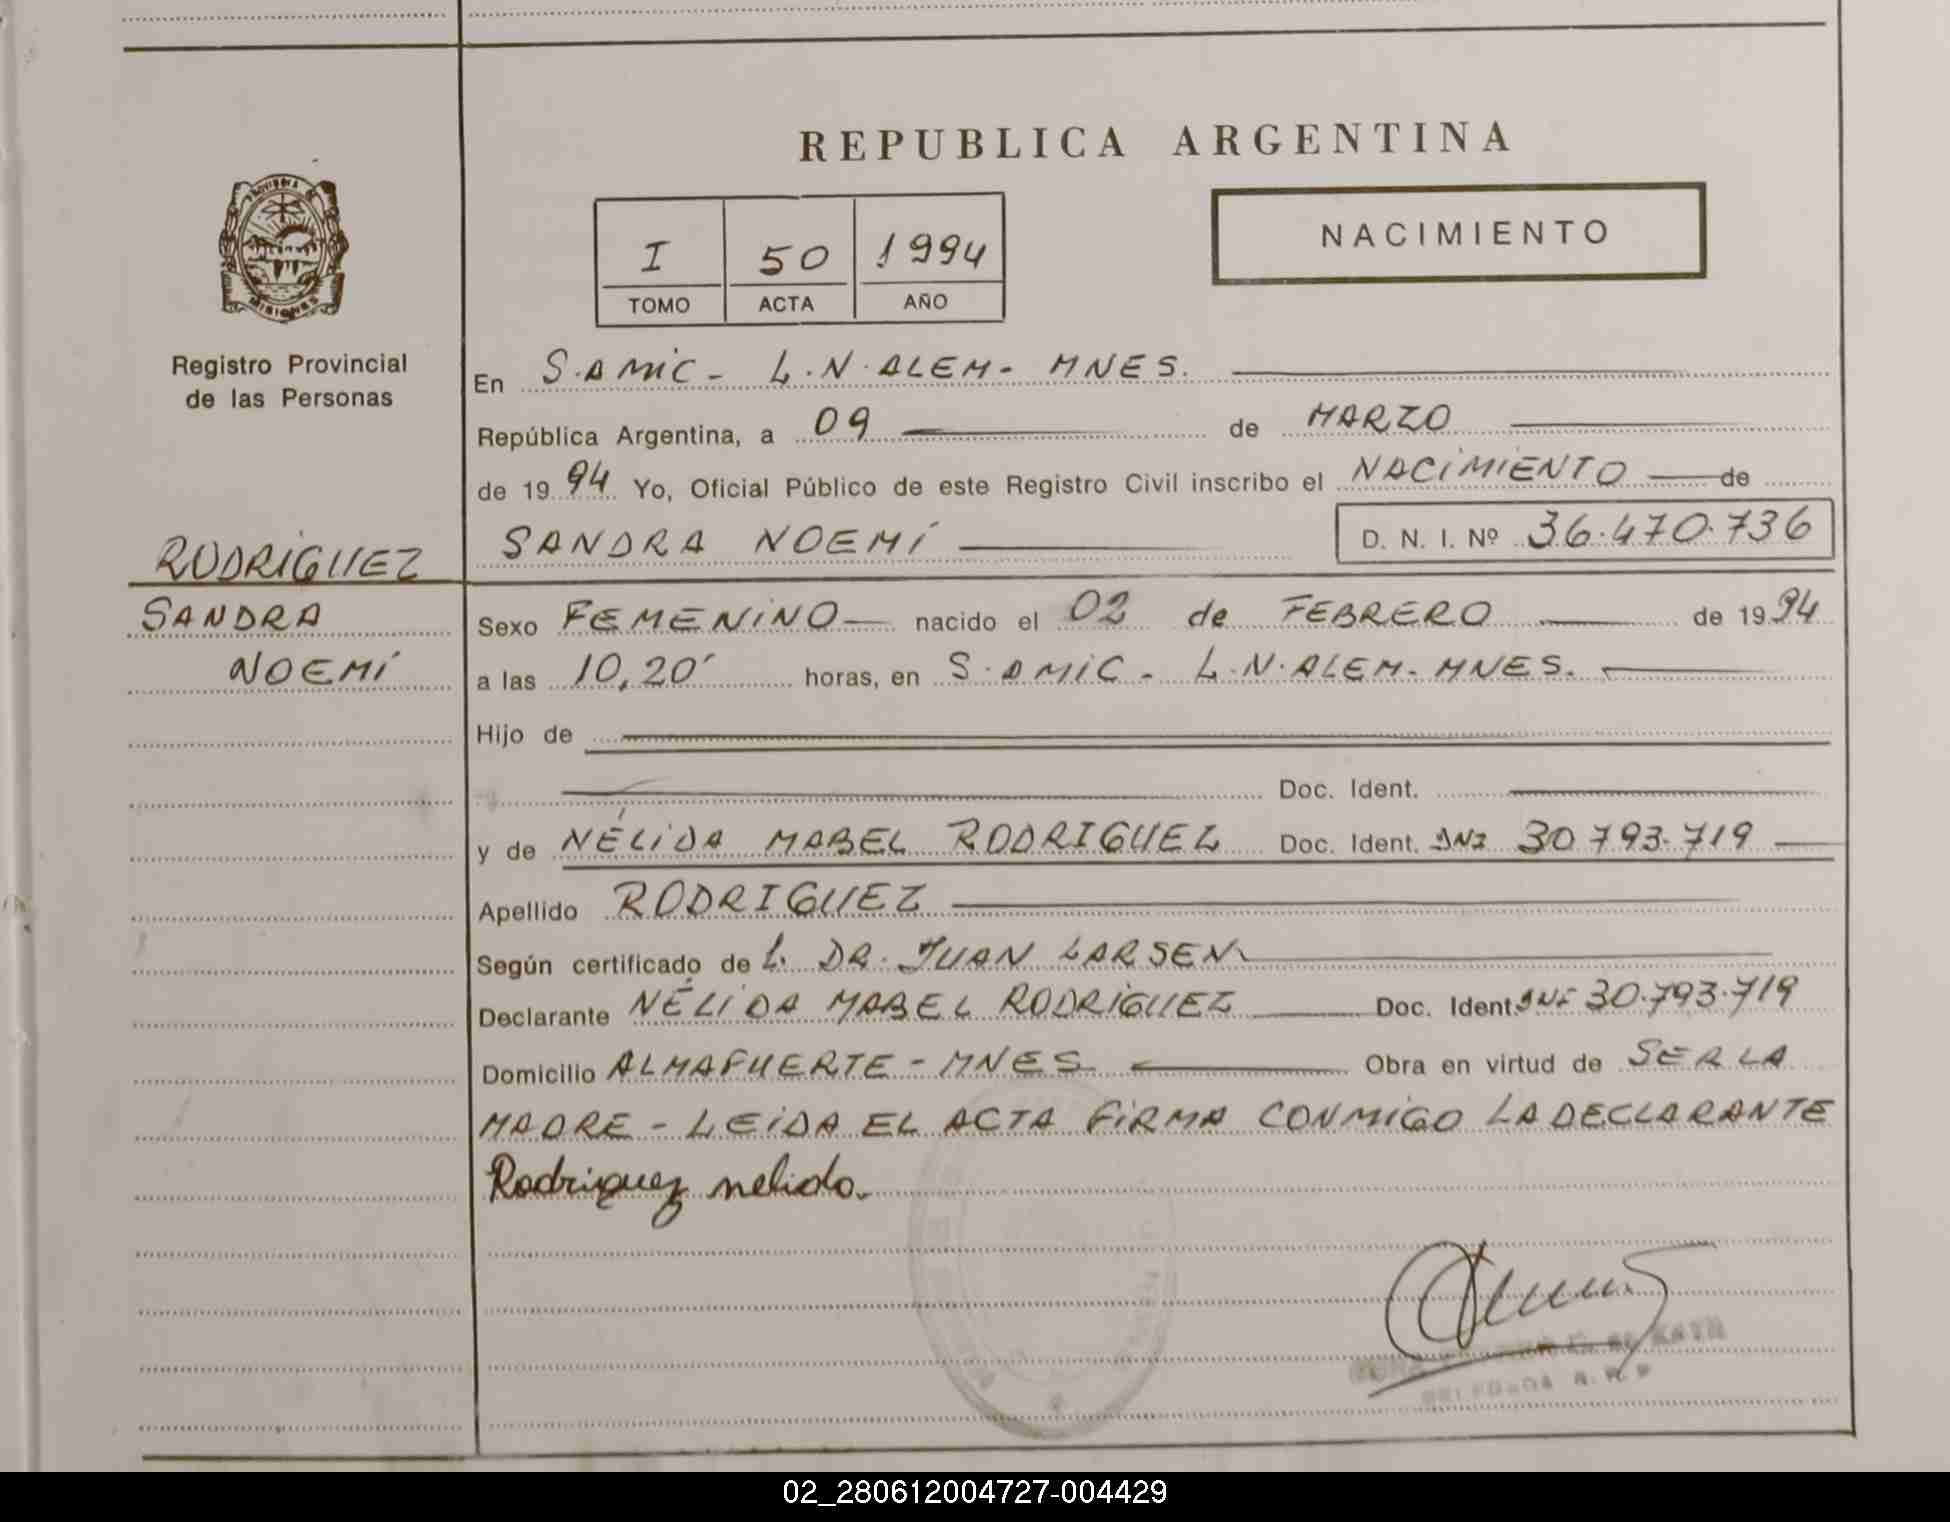 REPUBLICA ARGENTINA
NACIMIENTO
I 50 1994
TOMO ACTA AÑO
PROVINCIA DE
MISIONES
Registro Provincial
de las Personas
En S.AMIC - L.N.ALEM - MNES.
República Argentina, a 09 de MARZO
de 1994 Yo, Oficial Público de este Registro Civil inscribo el NACIMIENTO de
SANDRA NOEMÍ D. N. I. Nº 36.470.736
RODRIGUEZ
SANDRA
NOEMÍ
Sexo FEMENINO nacido el 02 de FEBRERO de 1994
a las 10,20' horas, en S.AMIC - L.N.ALEM - MNES.
Hijo de
Doc. Ident.
y de NÉLIDA MABEL RODRIGUEZ Doc. Ident. DNI 30.793.719
Apellido RODRIGUEZ
Según certificado de L. DR. JUAN LARSEN
Declarante NÉLIDA MABEL RODRIGUEZ Doc. Ident. DNI 30.793.719
Domicilio ALMAFUERTE - MNES Obra en virtud de SER LA
MADRE - LEIDA EL ACTA FIRMA CONMIGO LA DECLARANTE
Rodriguez nelida.
DELEGADA R. P. P
02_280612004727-004429